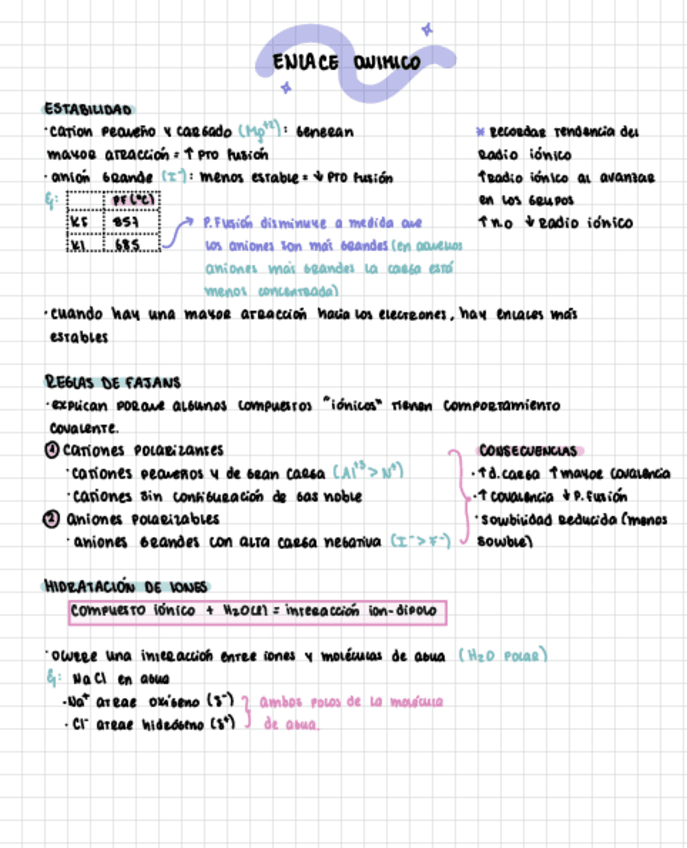 ENLACE QUIMICO
ESTABILIDAD
· catión pequeño y cargado (Mg⁺²): generan
mayor atracción = ↑ pto fusión
· anión grande (I⁻): menos estable = ↓ pto fusión
Ej:
PF (°C)
KF 857
KI 685
P. Fusión disminuye a medida que
los aniones son más grandes (en aquellos
aniones más grandes la carga está
menos concentrada)
* recordar tendencia del
radio iónico
↑ radio iónico al avanzar
en los grupos
↑ n.o ↓ radio iónico
· cuando hay una mayor atracción hacia los electrones, hay enlaces más
estables
REGLAS DE FAJANS
· explican porque algunos compuestos "iónicos" tienen comportamiento
covalente.
① cationes polarizantes
· cationes pequeños y de gran carga (Al⁺³ >
· cationes sin configuración de gas noble
② aniones polarizables
· aniones grandes con alta carga negativa (I⁻ > F⁻)
CONSECUENCIAS
· ↑ d. carga ↑ mayor covalencia
· ↑ covalencia ↓ P. fusión
· solubilidad reducida (menos
soluble)
HIDRATACIÓN DE IONES
compuesto iónico + H₂O(l) = interacción ion-dipolo
· ocurre una interacción entre iones y moléculas de agua (H₂O polar)
Ej: NaCl en agua
· Na⁺ atrae oxígeno (δ⁻)
· Cl⁻ atrae hidrógeno (δ⁺)
ambos polos de la molécula
de agua.